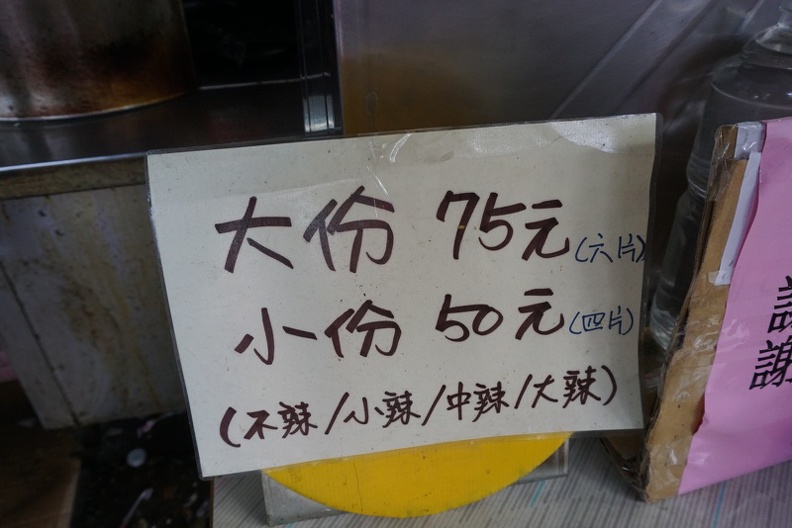 大份 75元(六片)
小份 50元(四片)
(不辣/小辣/中辣/大辣)
謝